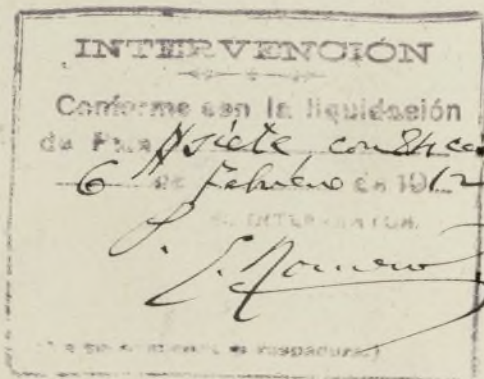 INTERVENCIÓN
Conforme con la liquidación
de Ptas siete con 84 ce
6 de Febrero de 1912
EL INTERVENTOR
Romero
raspaduras)